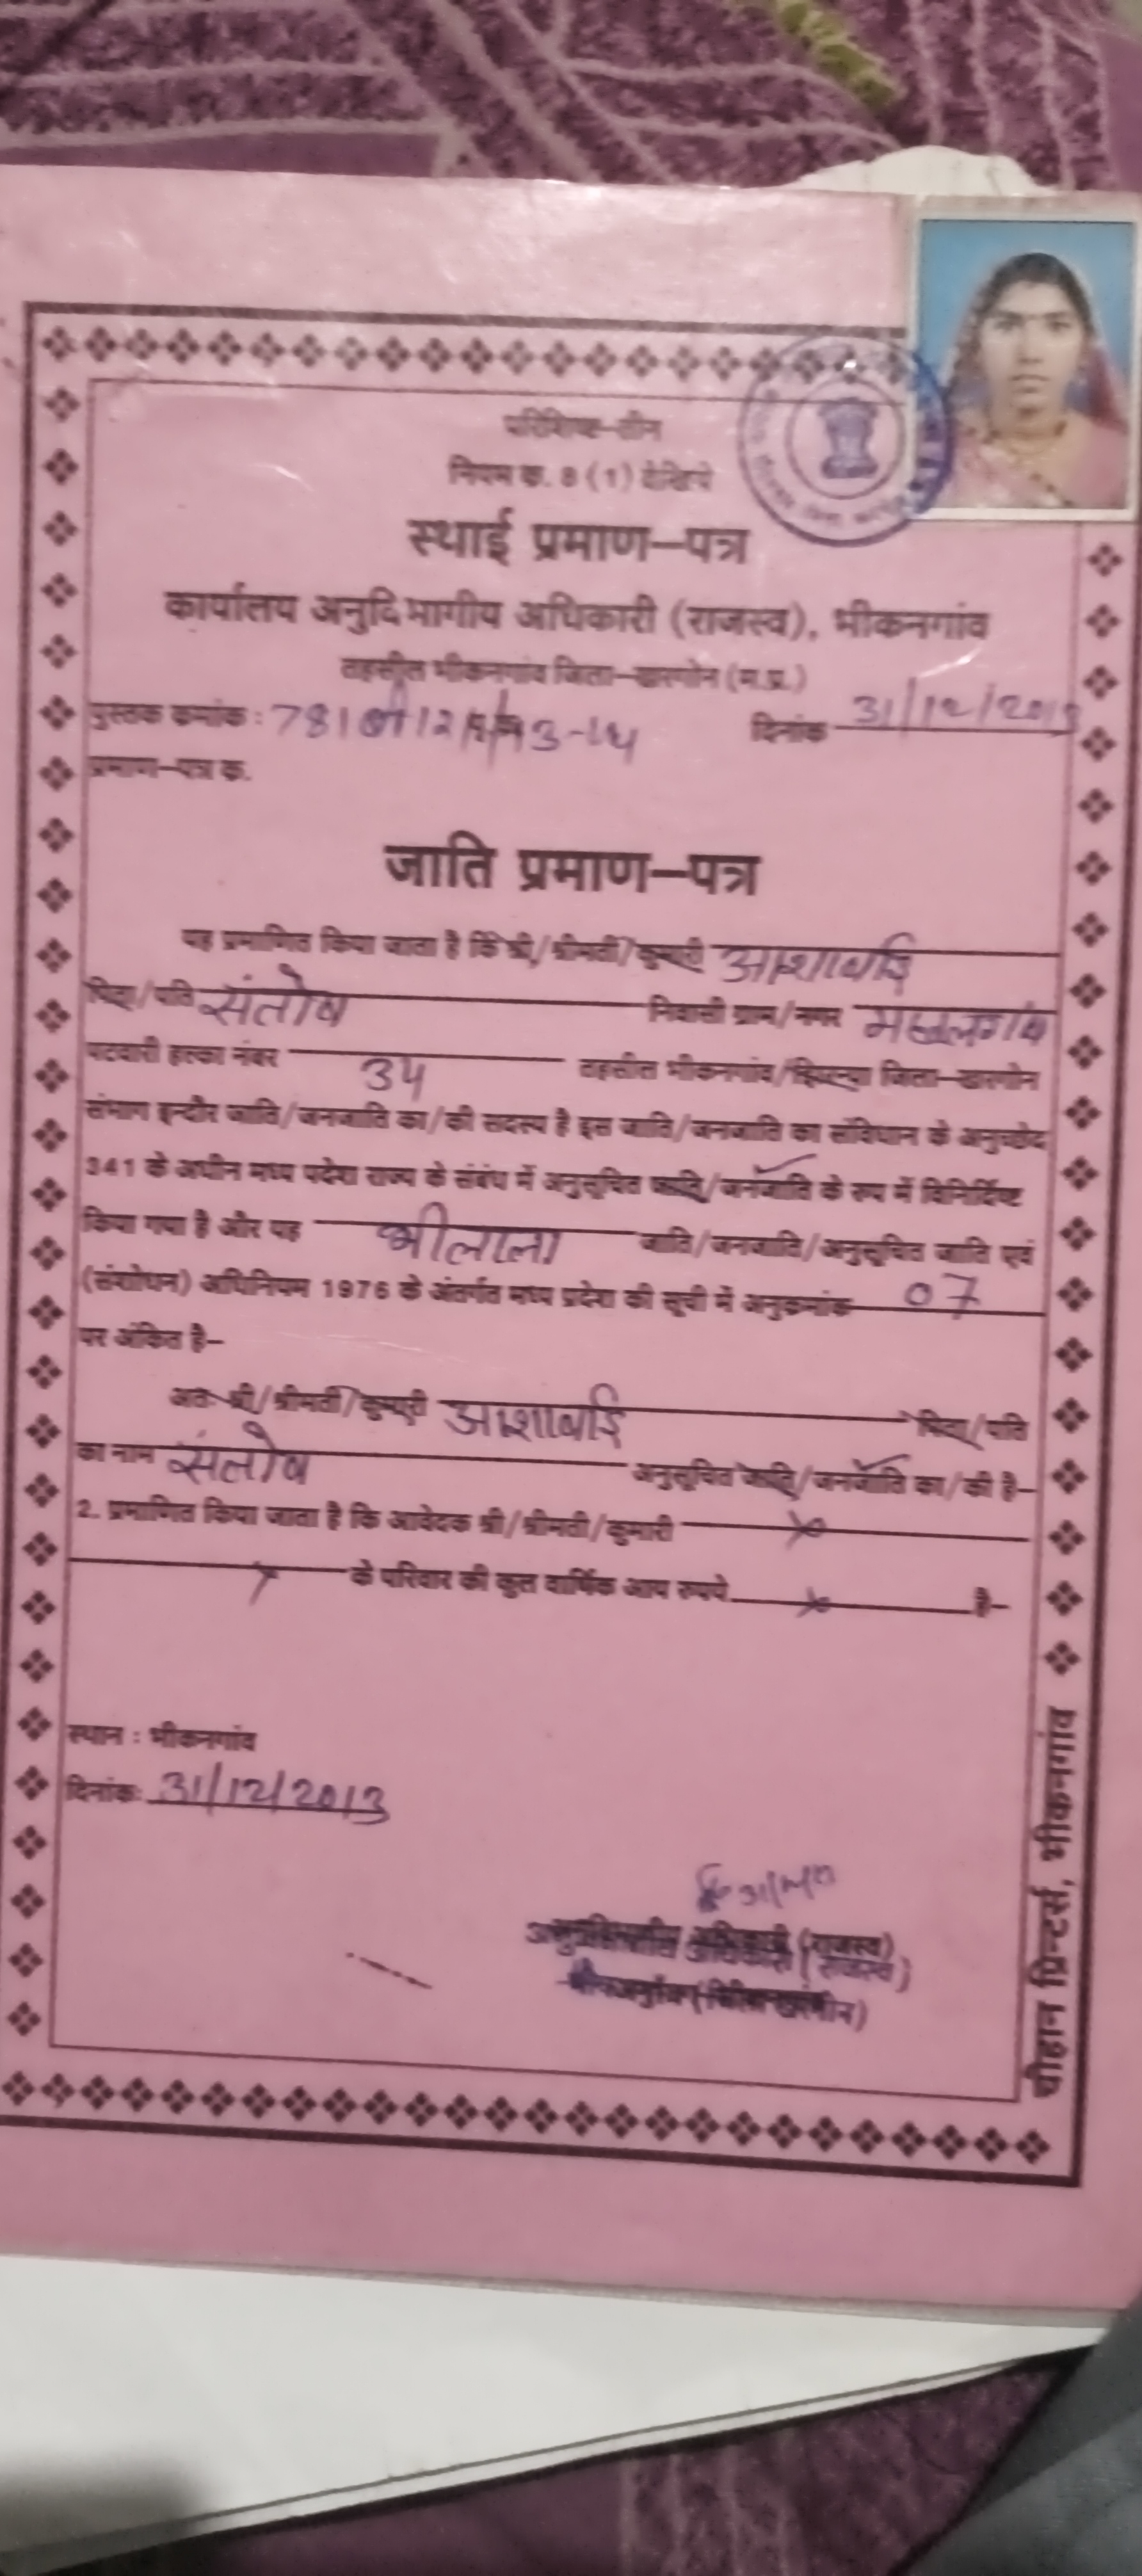 परिशिष्ट—तीन
नियम क. 8 (1) देखिये
स्थाई प्रमाण—पत्र
कार्यालय अनुविभागीय अधिकारी (राजस्व), भीकनगांव
तहसील भीकनगांव जिला—खरगोन (म.प्र.)
पुस्तक क्रमांक : दिनांक 31/12/2013
प्रमाण—पत्र क.
जाति प्रमाण—पत्र
यह प्रमाणित किया जाता है कि श्री/श्रीमती/कुमारी आशाबाई
पिता/पति संतोष निवासी ग्राम/नगर
पटवारी हल्का नंबर 34 तहसील भीकनगांव/झिरन्या जिला—खरगोन
संभाग इन्दौर जाति/जनजाति का/की सदस्य है इस जाति/जनजाति का संविधान के अनुच्छेद
341 के अधीन मध्य प्रदेश राज्य के संबंध में अनुसूचित जाति/जनजाति के रूप में विनिर्दिष्ट
किया गया है और यह भीलाला जाति/जनजाति/अनुसूचित जाति एवं
(संशोधन) अधिनियम 1976 के अंतर्गत मध्य प्रदेश की सूची में अनुक्रमांक 07
पर अंकित है—
अतः श्री/श्रीमती/कुमारी आशाबाई पिता/पति
का नाम संतोष अनुसूचित जाति/जनजाति का/की है—
2. प्रमाणित किया जाता है कि आवेदक श्री/श्रीमती/कुमारी
के परिवार की कुल वार्षिक आय रुपये है—
स्थान : भीकनगांव
दिनांक: 31/12/2013
अधिकारी (राजस्व)
चौहान प्रिन्टर्स, भीकनगांव